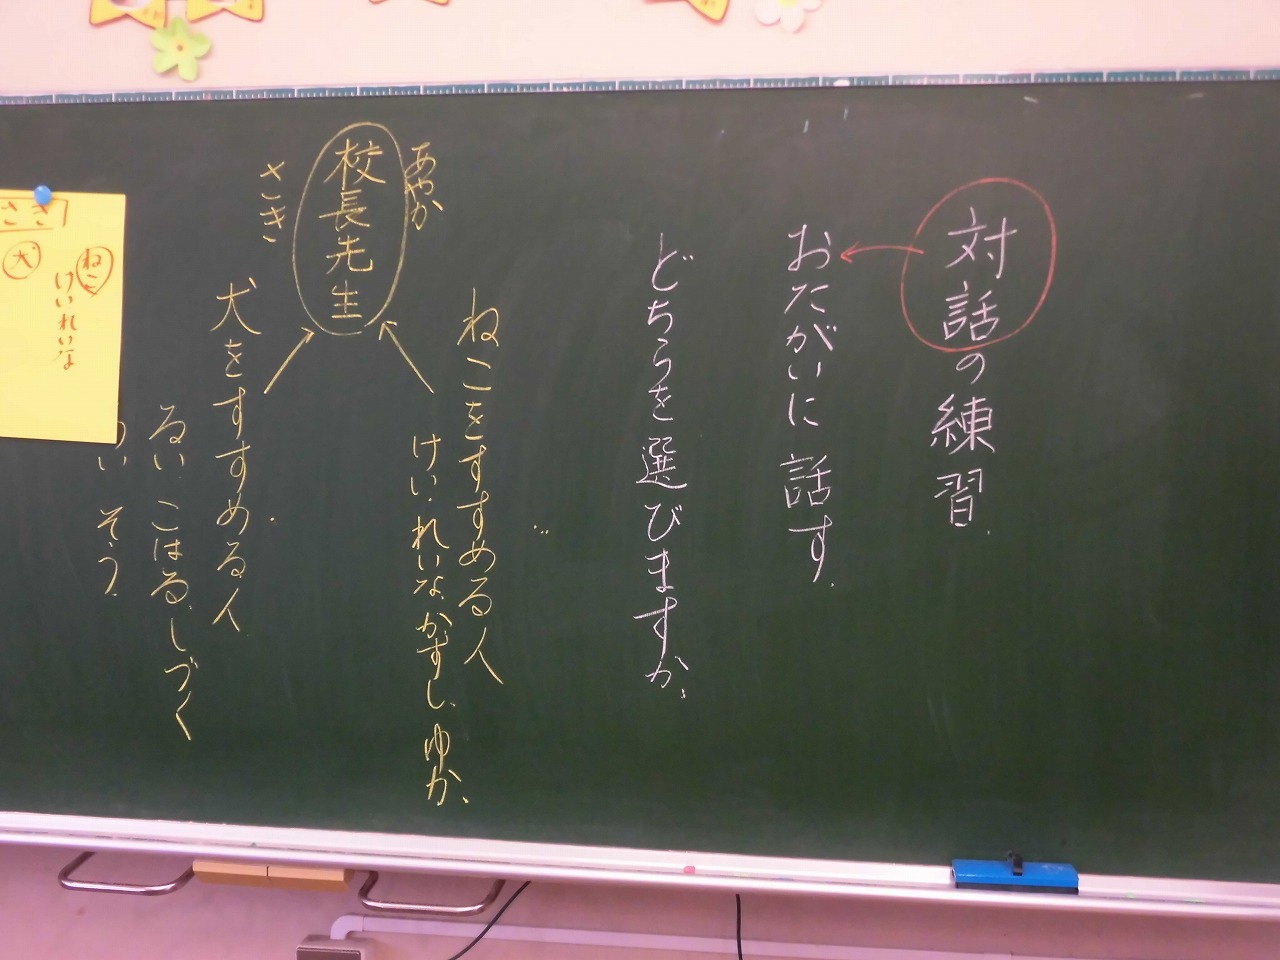 対話の練習
おたがいに話す
どちらを選びますか、
ねこをすすめる人
けい、れいな、かずし、ゆか、
あやか
校長先生
さき
犬をすすめる人
るい、こはる、しづく
い そう
さき
ねこ
けい、れいな
犬